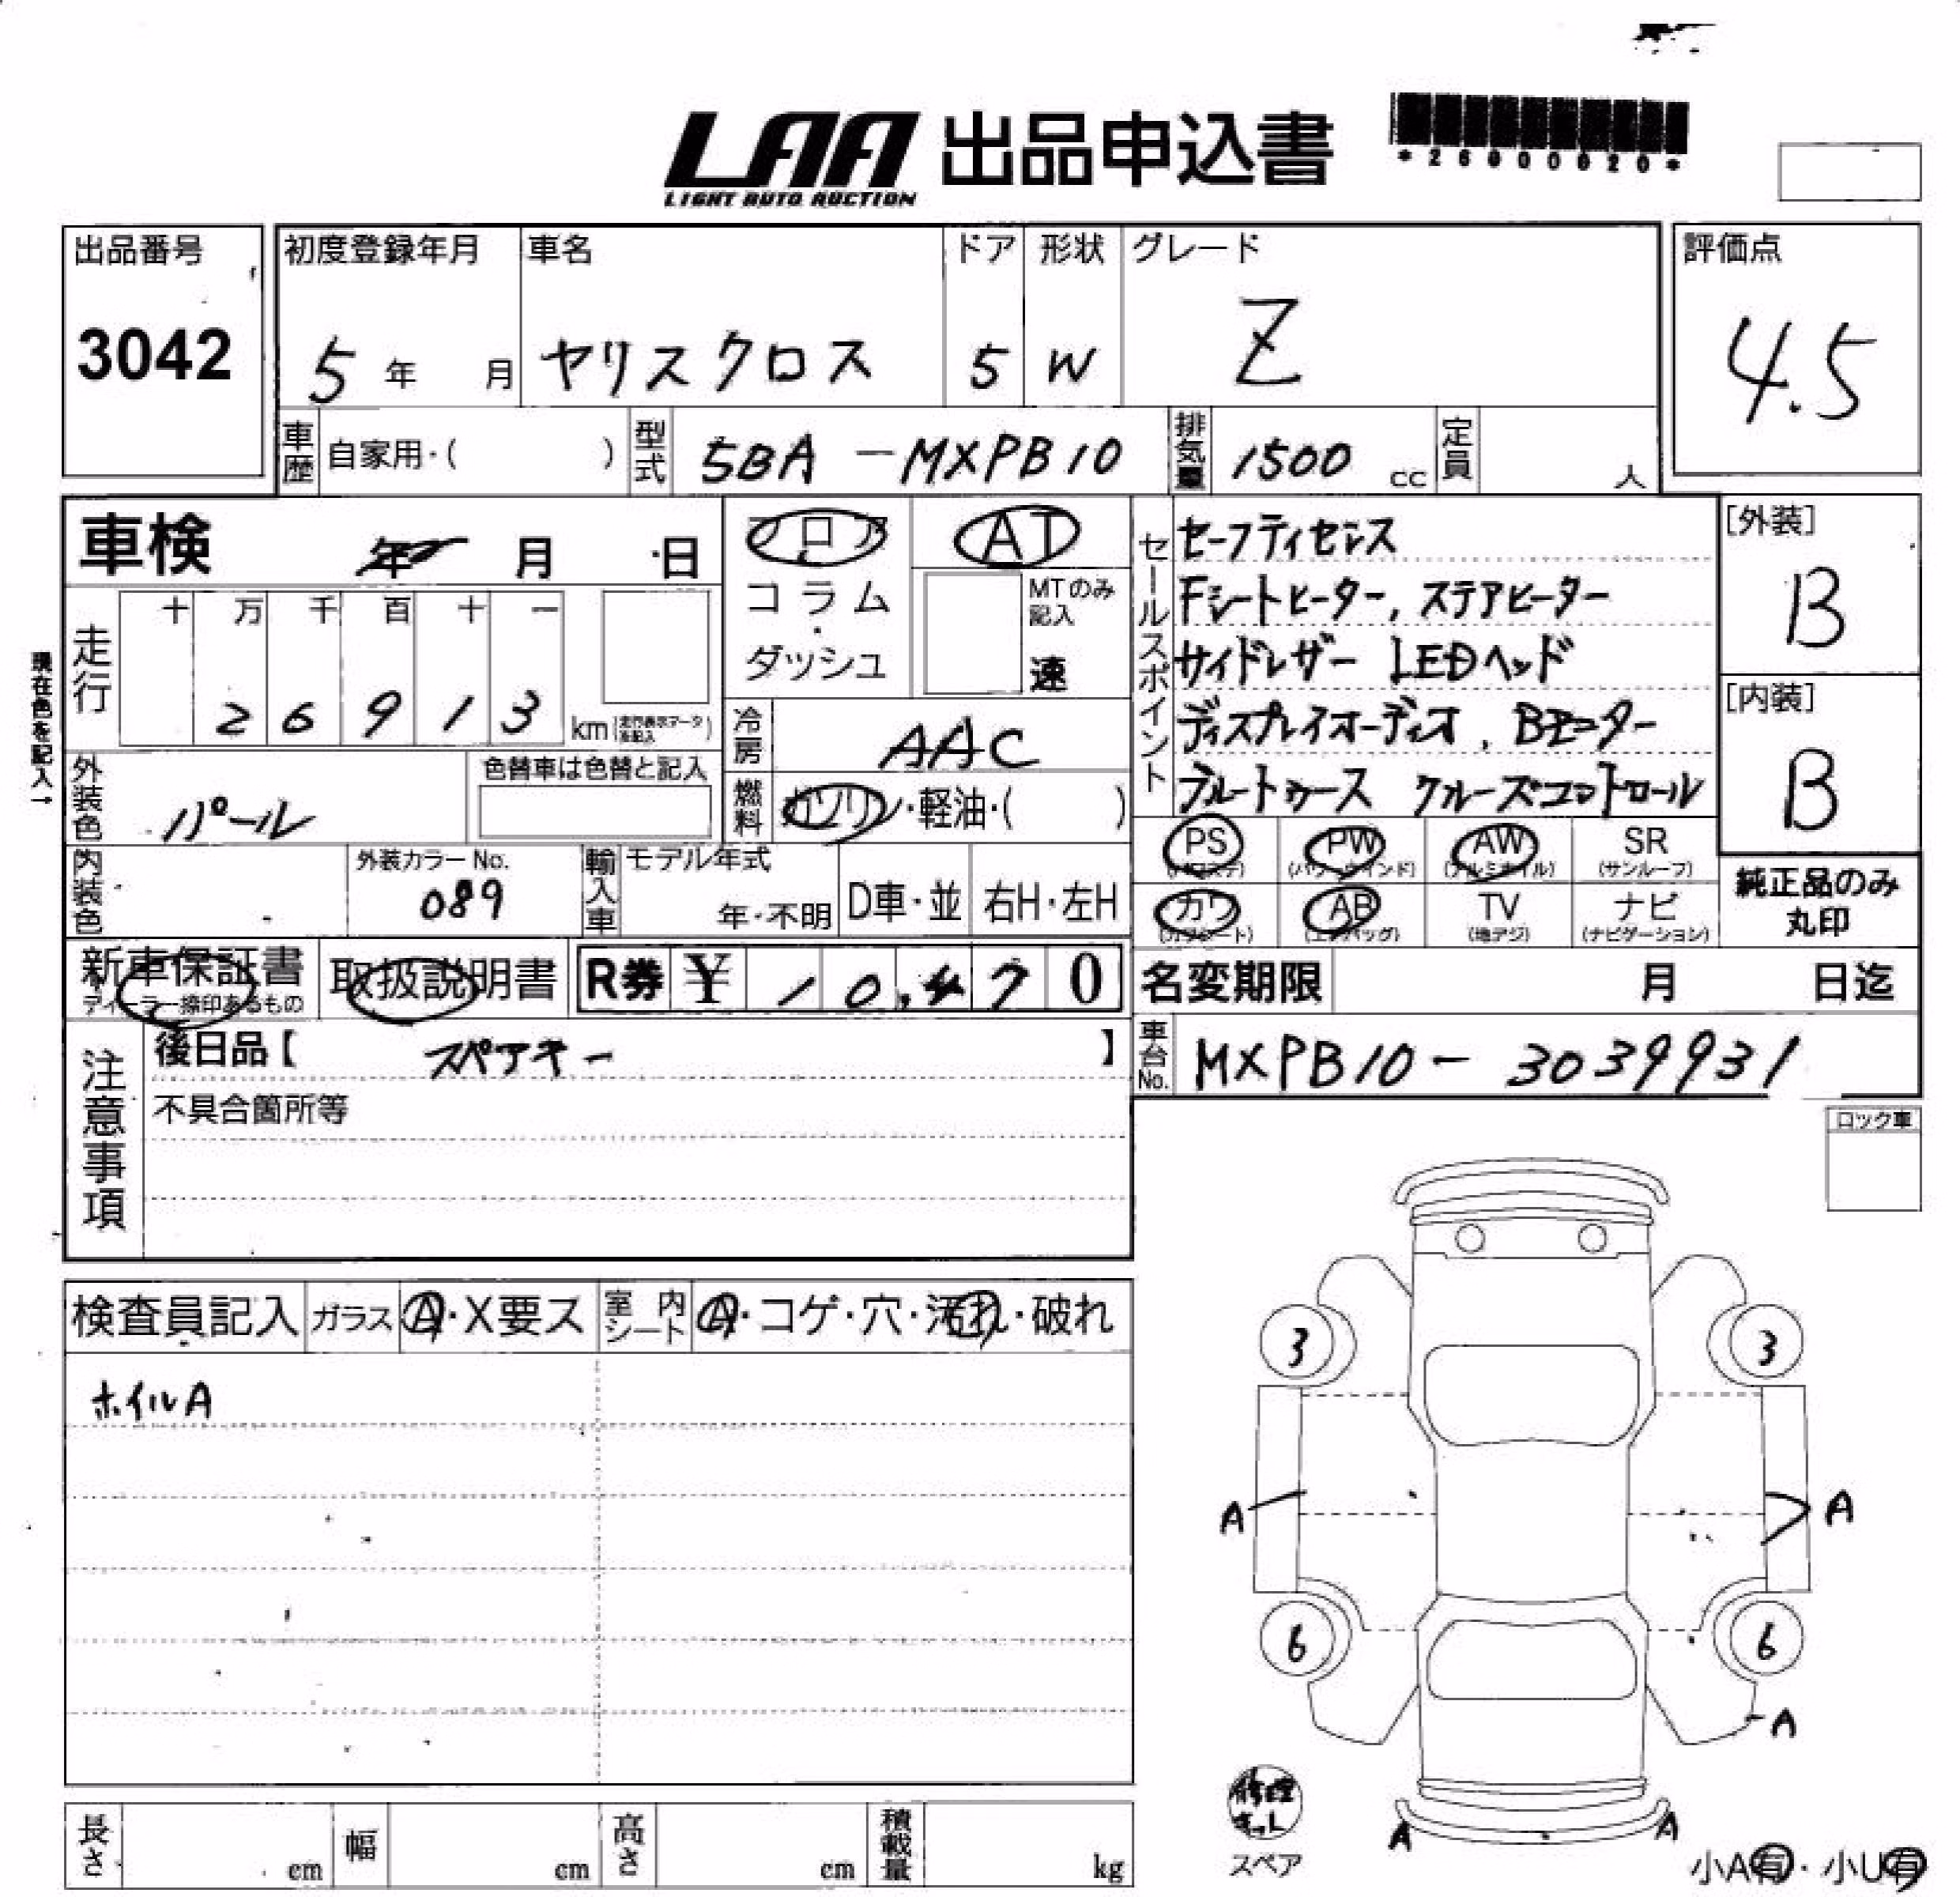 LAA 出品申込書
LIGHT AUTO AUCTION
*26000020*
出品番号
3042
初度登録年月
5年 月
車名
ヤリスクロス
ドア
5
形状
W
グレード
Z
評価点
4.5
車歴
自家用・( )
型式
5BA-MXPB10
排気量
1500 cc
定員
人
車検 年 月 日
フロア
コラム・ダッシュ
AT
MTのみ記入
速
現在色を記入→
走行
十 万 千 百 十 一
2 6 9 1 3 km
冷房
AAC
燃料
ガソリン・軽油・( )
外装色
パール
色替車は色替と記入
内装色
外装カラーNo.
089
輸入車
モデル年式
年・不明
D車・並
右H・左H
セールスポイント
セーフティセンス
Fシートヒーター, ステアヒーター
サイドレザー LEDヘッド
ディスプレイオーディオ, Bモニター
ブルートゥース クルーズコントロール
[外装]
B
[内装]
B
PS PW AW SR
(パワステ) (パワーウインド) (アルミホイル) (サンルーフ)
カワ AB TV ナビ
(カワシート) (エアバッグ) (地デジ) (ナビゲーション)
純正品のみ丸印
新車保証書
ディーラー捺印あるもの
取扱説明書
R券 ¥ 10,470
名変期限 月 日迄
車台No.
MXPB10-3039931
注意事項
後日品【 スペアキー 】
不具合箇所等
ロック車
検査員記入
ガラス A・X要ス
室内シート A・コゲ・穴・汚れ・破れ
ホイルA
3 3
A A
6 6
A
A A
修理キット
スペア
小A有・小U有
長さ cm
幅 cm
高さ cm
積載量 kg